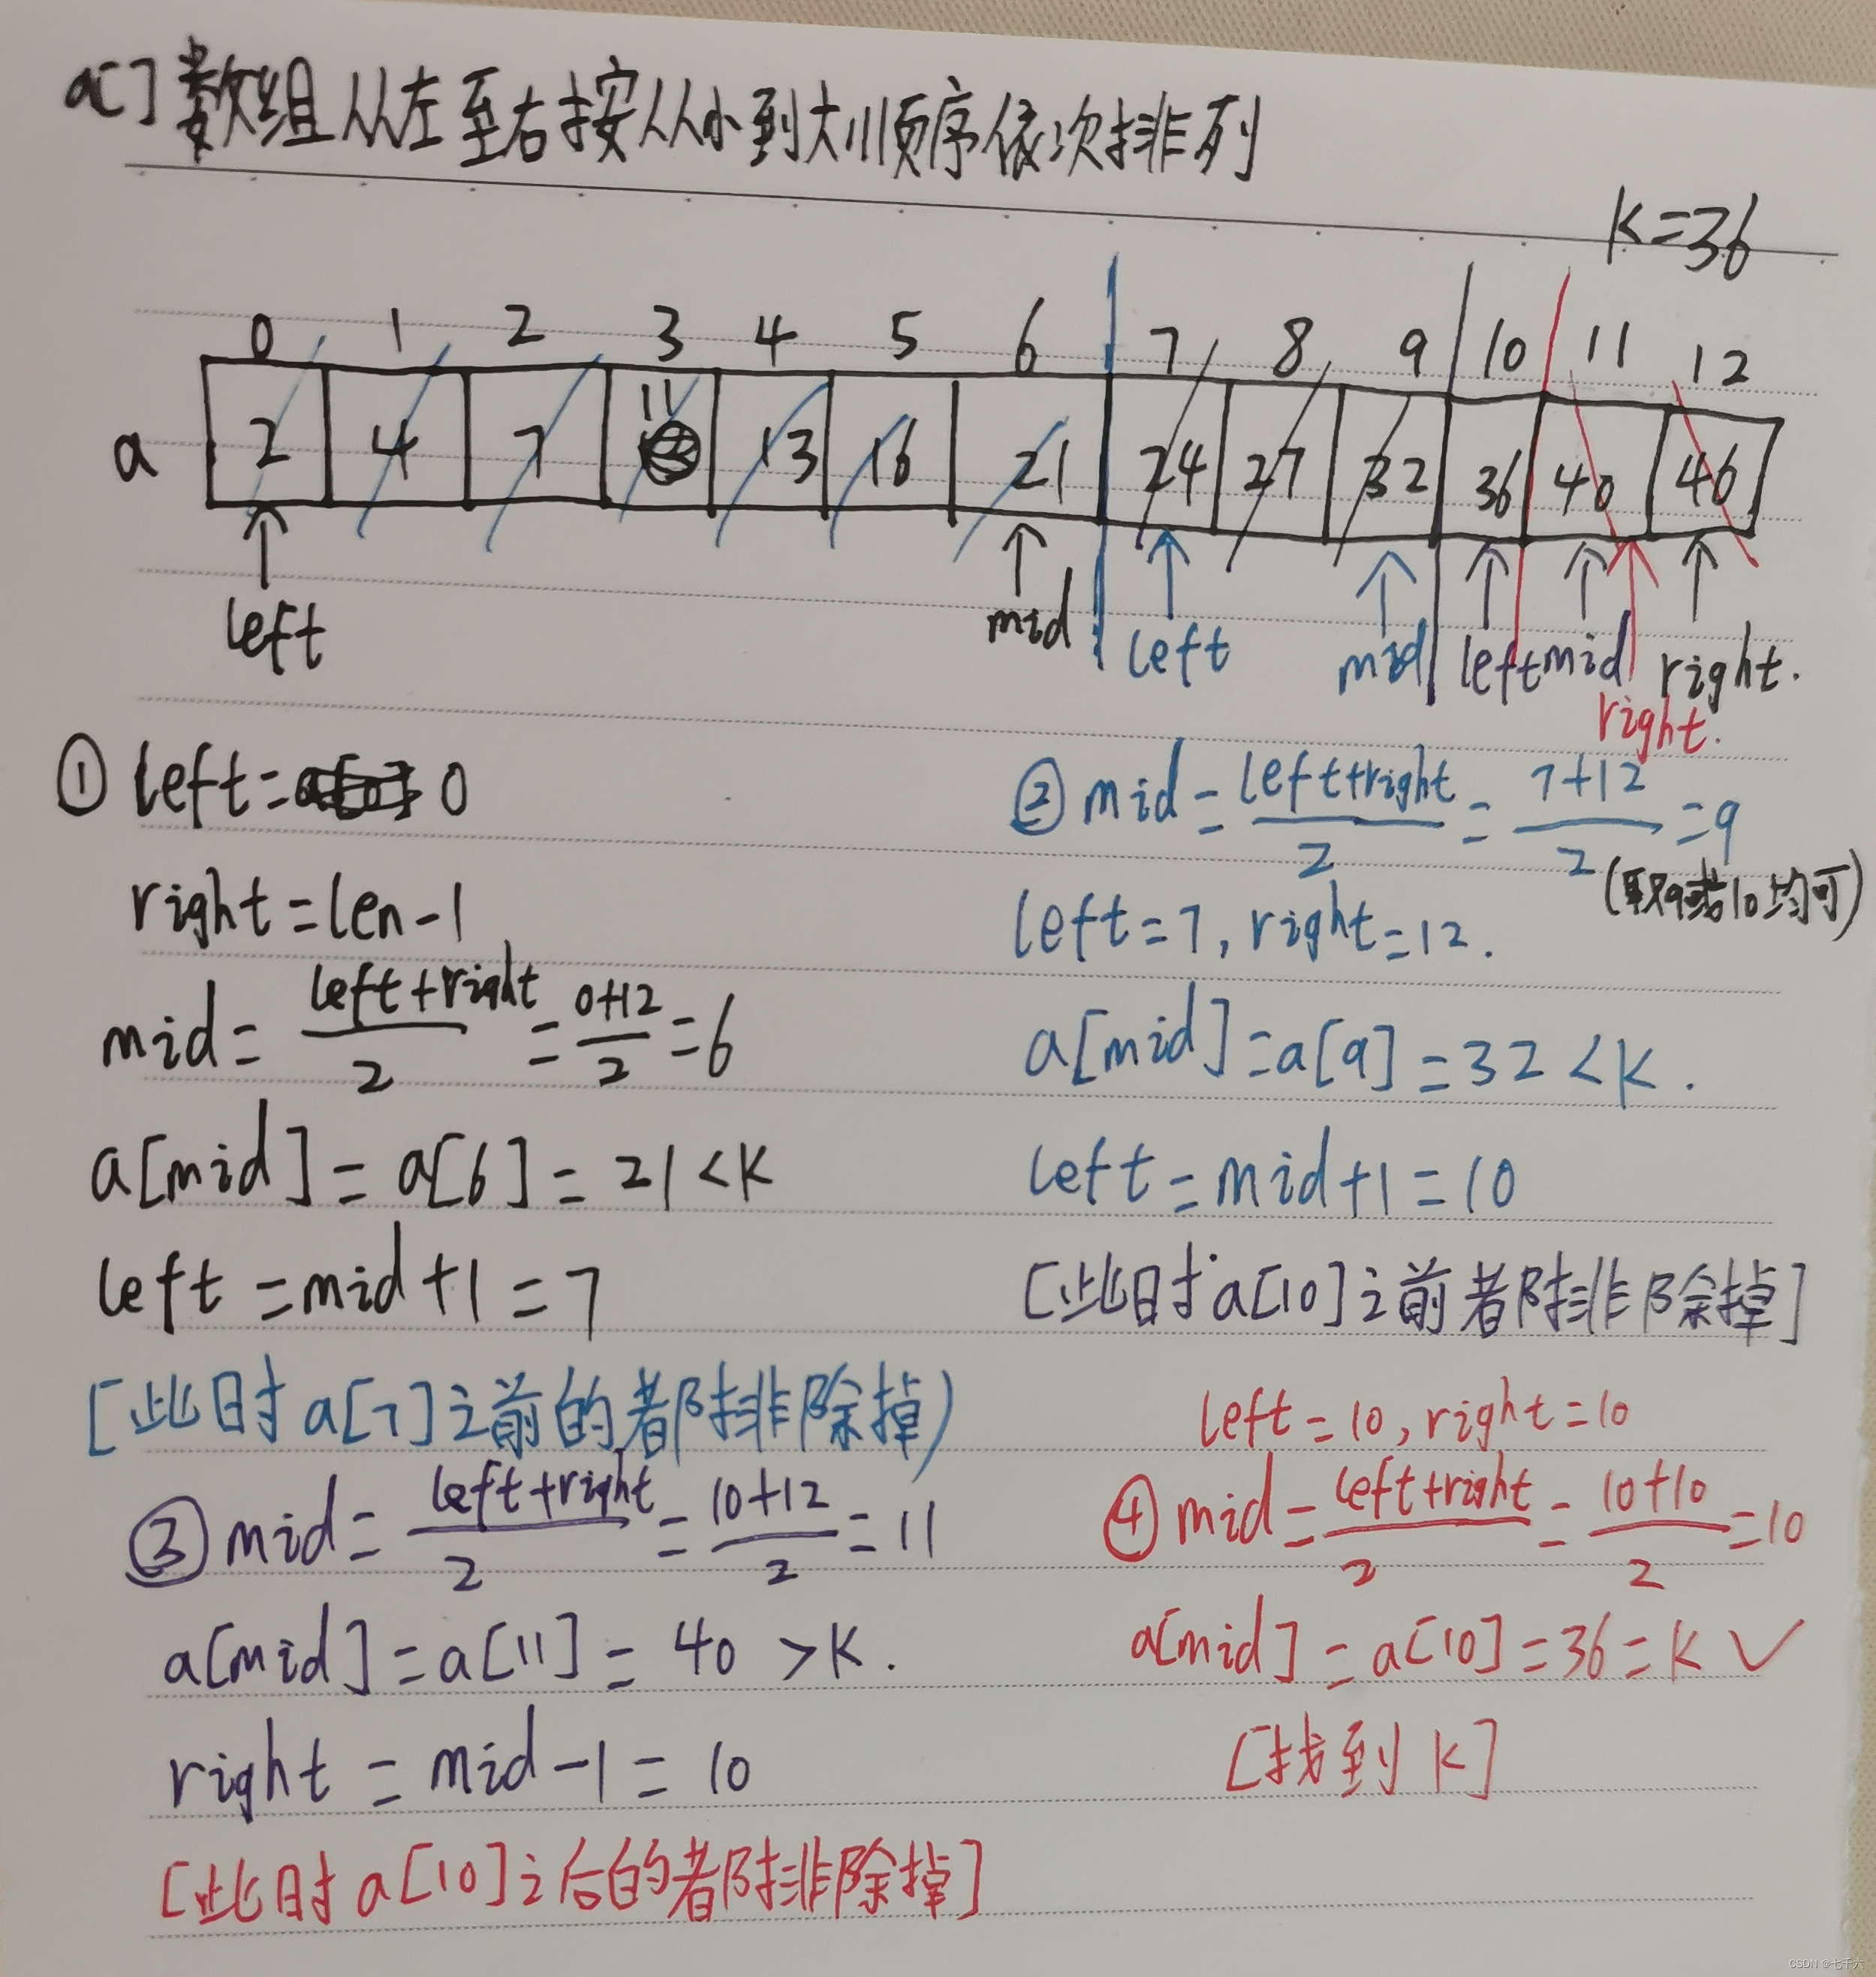 a[]数组从左至右按从小到大顺序依次排列
k=36
0 1 2 3 4 5 6 7 8 9 10 11 12
a 2 4 7 11 13 16 21 24 27 32 36 40 46
left mid left mid left mid right.
right.
① left= 0
right=len-1
mid= left+right/2 = 0+12/2 =6
a[mid]=a[6]=21<k
left=mid+1=7
[此时a[7]之前的都排除掉)
② mid= left+right/2 = 7+12/2 =9
(取9或10均可)
left=7,right=12.
a[mid]=a[9]=32<k.
left=mid+1=10
[此时a[10]之前都排除掉]
③ mid= left+right/2 = 10+12/2 =11
a[mid]=a[11]=40>k.
right=mid-1=10
[此时a[10]之后的都排除掉]
left=10,right=10
④ mid= left+right/2 = 10+10/2 =10
a[mid]=a[10]=36=k✓
[找到k]
CSDN @七千六